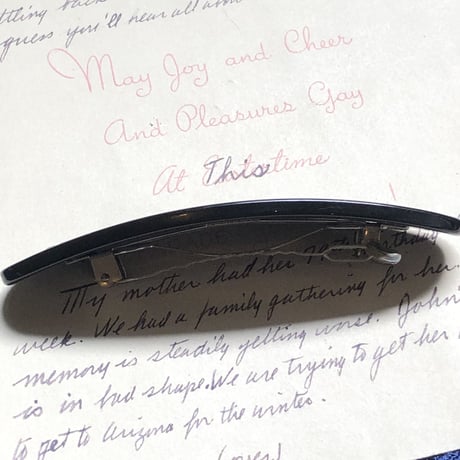 guess you'll hear all
May Joy and Cheer
And Pleasures Gay
At This time
My mother had her birthday
week. We had a family gathering for her.
memory is steadily getting worse. John'
is in bad shape. We are trying to get her
to get to Arizona for the winter.
(over)